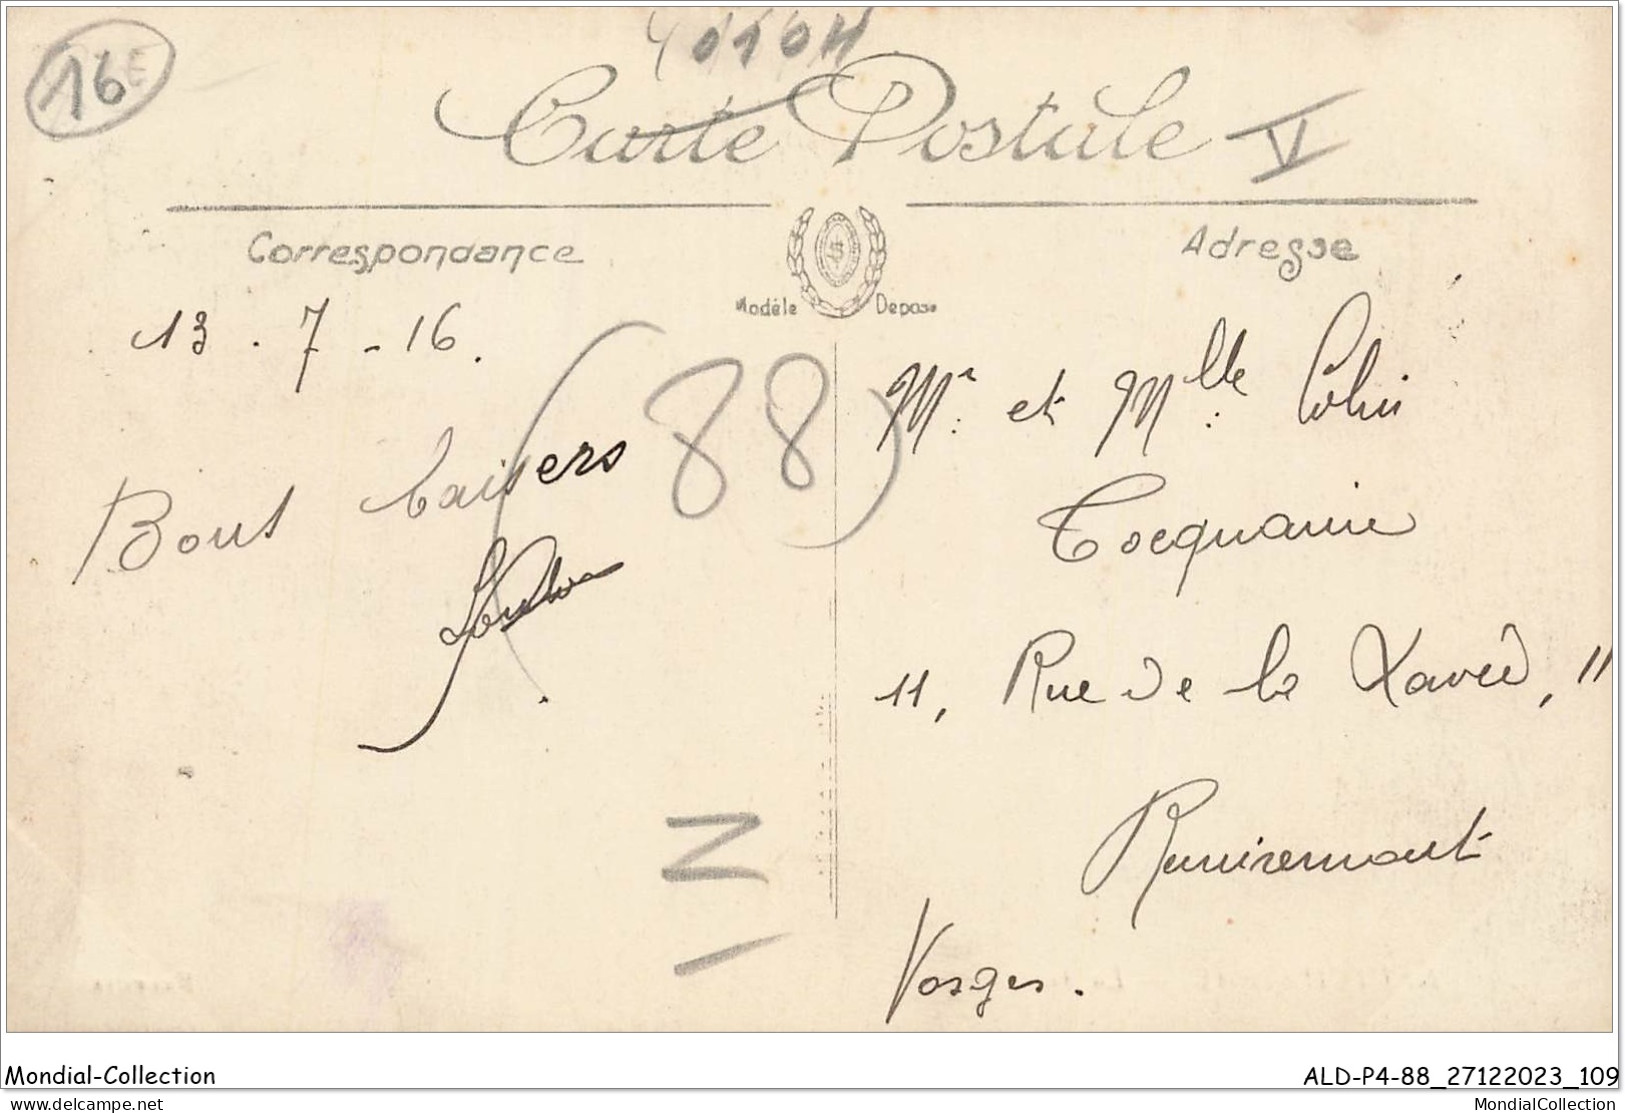 16E
Carte Postale V
Correspondance
Adresse
Modèle Déposé
13 . 7 - 16 .
Bons baisers
88)
Mr. et Mlle Colin
Tocquaine
11, Rue de la Xavée, 11
Remiremont
Vosges.
Mondial-Collection
ALD-P4-88_27122023_109
delcampe.net
MondialCollection